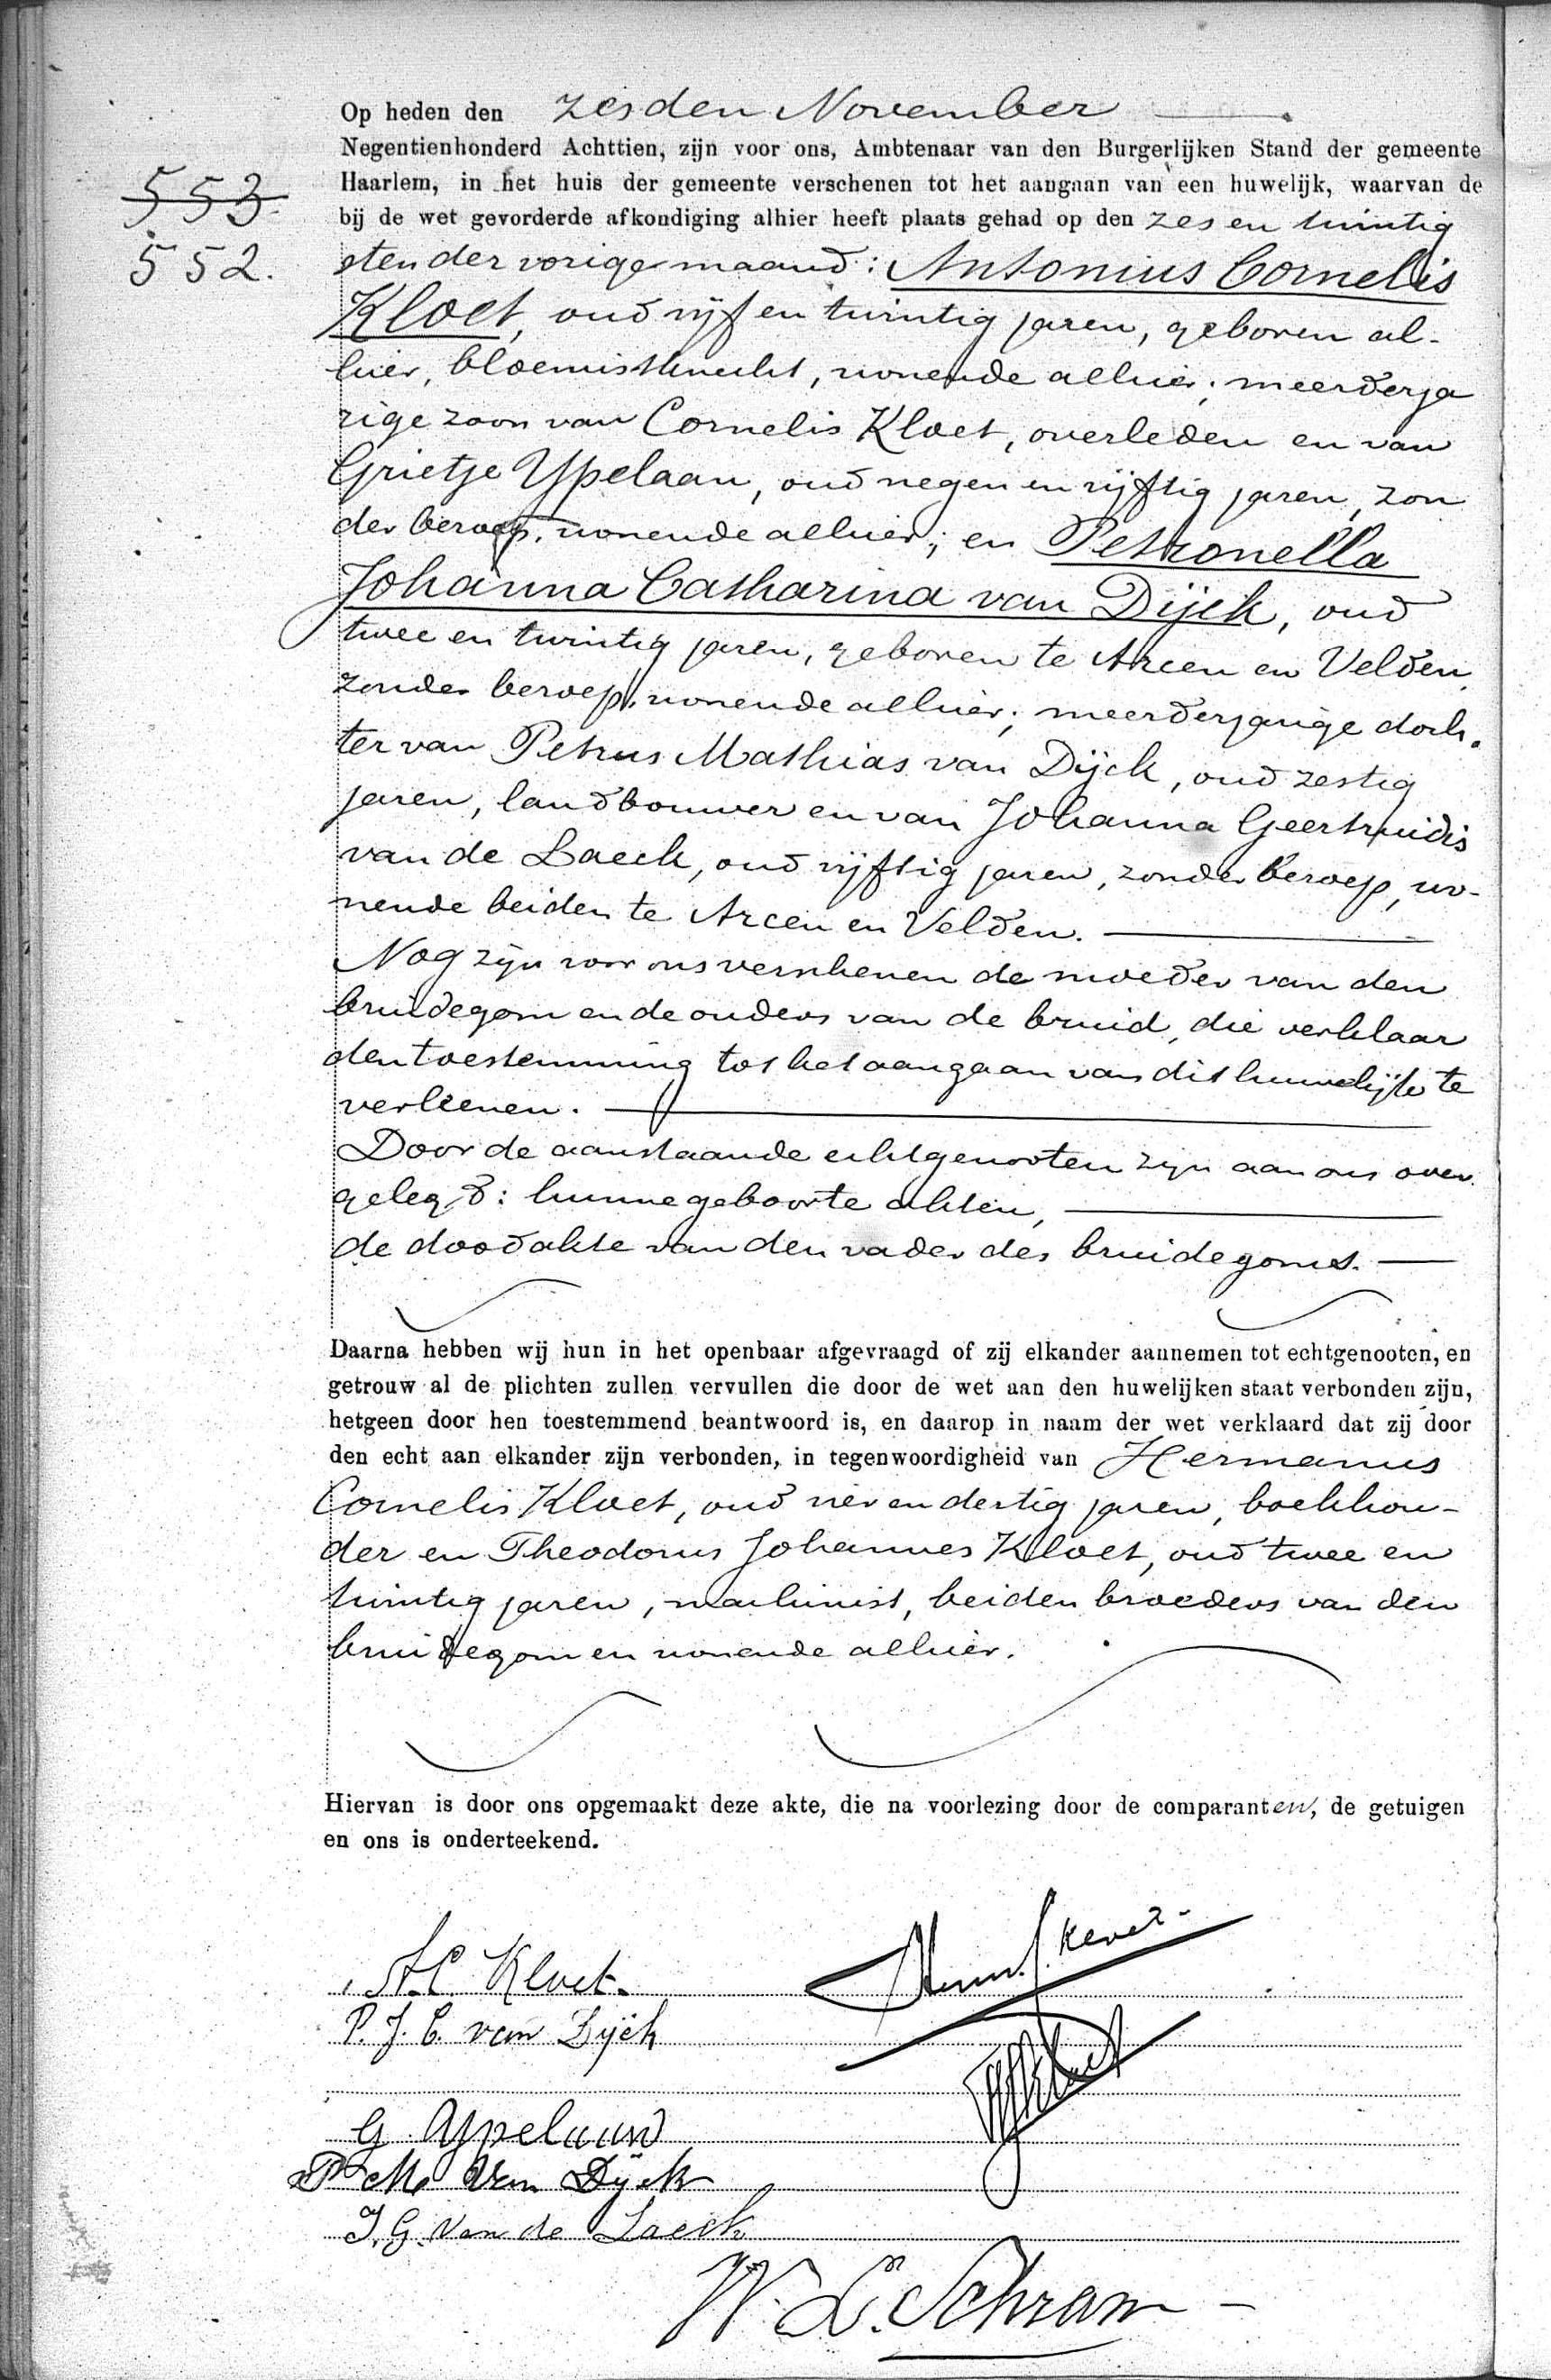 Op heden den zesden November
Negentienhonderd Achttien, zijn voor ons, Ambtenaar van den Burgerlijken Stand der gemeente
553.
Haarlem, in het huis der gemeente verschenen tot het aangaan van een huwelijk, waarvan de
bij de wet gevorderde afkondiging alhier heeft plaats gehad op den zes en twintig
552.
sten der vorige maand: Antonius Cornelis
Kloet, oud vijf en twintig jaren, geboren al-
hier, bloemistknecht, wonende alhier; meerderja
rige zoon van Cornelis Kloet, overleden en van
Grietje Ypelaan, oud negen en vijftig jaren, zon
der beroep, wonende alhier; en Petronella
Johanna Catharina van Dijck, oud
twee en twintig jaren, geboren te Arcen en Velden,
zonder beroep, wonende alhier; meerderjarige doch-
ter van Petrus Mathias van Dijck, oud zestig
jaren, landbouwer en van Johanna Geertruidis
van de Laeck, oud vijftig jaren, zonder beroep, wo-
nende beiden te Arcen en Velden.
Nog zijn voor ons verschenen de moeder van den
bruidegom en de ouders van de bruid, die verklaar
den toestemming tot het aangaan van dit huwelijk te
verleenen.
Door de aanstaande echtgenooten zijn aan ons over
gelegd: hunne geboorte akten,
de doodakte van den vader des bruidegoms.
Daarna hebben wij hun in het openbaar afgevraagd of zij elkander aannemen tot echtgenooten, en
getrouw al de plichten zullen vervullen die door de wet aan den huwelijken staat verbonden zijn,
hetgeen door hen toestemmend beantwoord is, en daarop in naam der wet verklaard dat zij door
den echt aan elkander zijn verbonden, in tegenwoordigheid van Hermanus
Cornelis Kloet, oud vier en dertig jaren, boekhou-
der en Theodorus Johannes Kloet, oud twee en
twintig jaren, machinist, beiden broeders van den
bruidegom en wonende alhier.
Hiervan is door ons opgemaakt deze akte, die na voorlezing door de comparanten, de getuigen
en ons is onderteekend.
A.C. Kloet.
P. J. C. van Dijck
TJKloet
G Ypelaan
P M Van Dyck
J. G. Van de Laeck
W. L. Schram